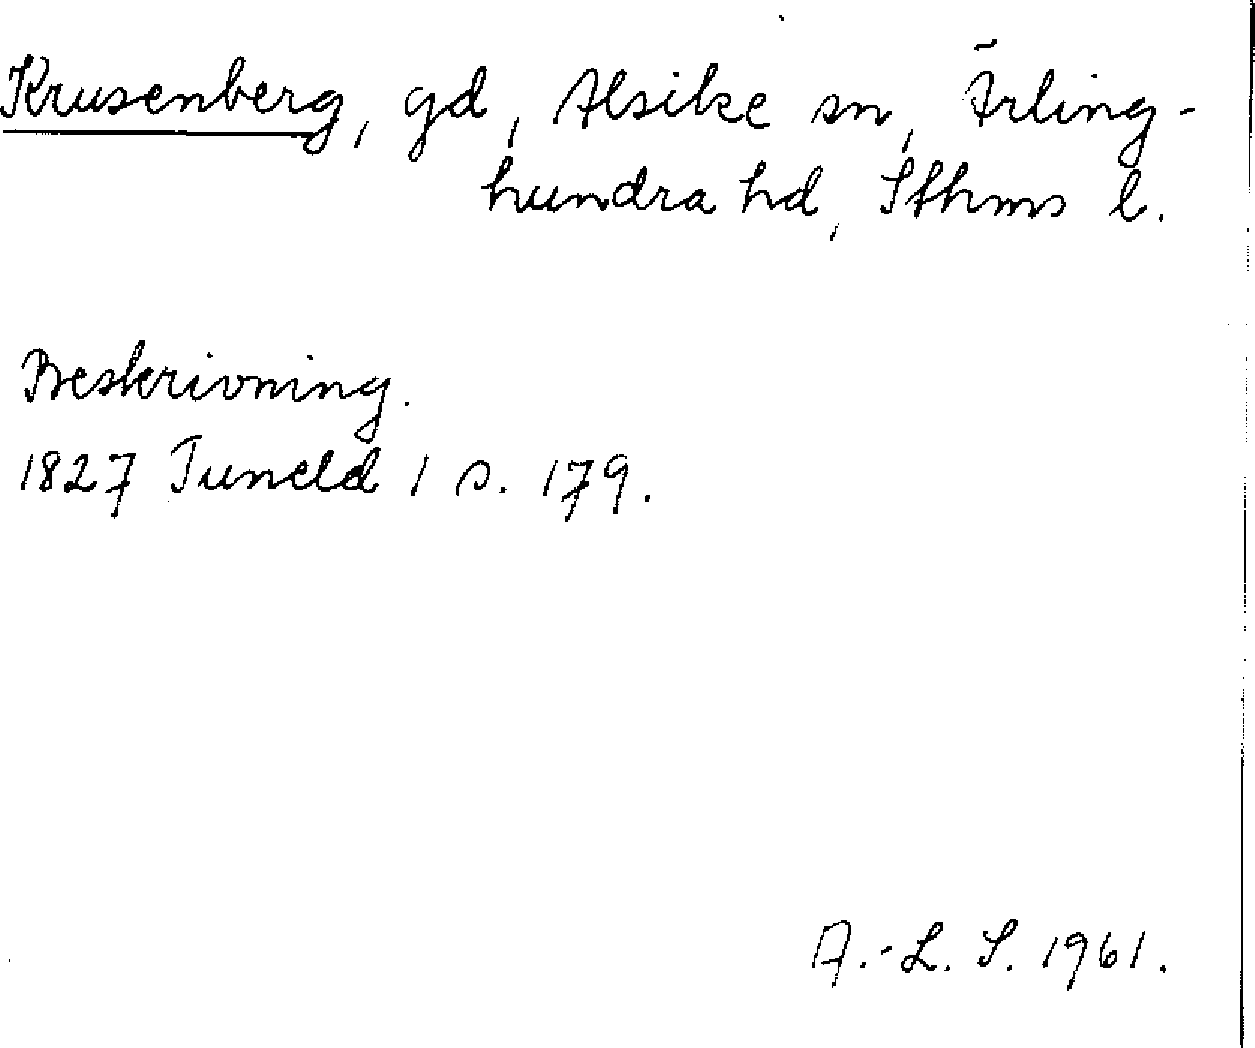 Krusenberg, gd, Alsike sn, Ärling-
hundra hd, Sthms l.
Beskrivning.
1827 Tuneld 1 s. 179.
A.-L. S. 1961.